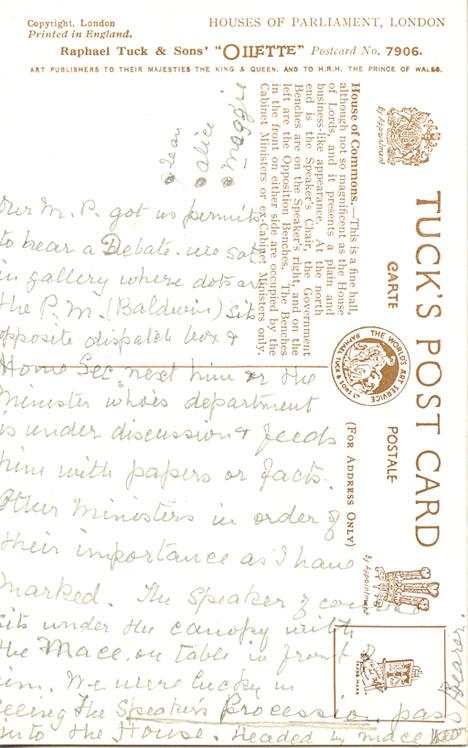 Copyright, London
Printed in England.
HOUSES OF PARLIAMENT, LONDON
Raphael Tuck & Sons' "OILETTE" Postcard No. 7906.
ART PUBLISHERS TO THEIR MAJESTIES THE KING & QUEEN, AND TO H.R.H. THE PRINCE OF WALES.
House of Commons.—This is a fine hall,
although not so magnificent as the House
of Lords, and it presents a plain and
business-like appearance. At the north
end is the Speaker's Chair, the Government
Benches are on the Speaker's right, and on the
left are the Opposition Benches. The Benches
in the front on either side are occupied by the
Cabinet Ministers or ex-Cabinet Ministers only.
By Appointment
TUCK'S POST CARD
CARTE POSTALE
THE WORLD'S ART SERVICE
RAPHAEL TUCK & SONS LTD
(FOR ADDRESS ONLY)
By Appointment
TRADE MARK
Jean
alice
maggie
Our M.P. got us permits
to hear a Debate. we sat
in gallery where dots are
the P.M. (Baldwin) sits
opposite dispatch box &
Home Sec. next him or the
Minister who's department
is under discussion & feeds
him with papers or facts.
Other Ministers in order of
their importance as I have
marked. The Speaker of course
sits under the canopy with
the Mace on table in front
him. We were lucky in
seeing the Speaker's Procession pass
into the House. Headed by mace
Bearer.